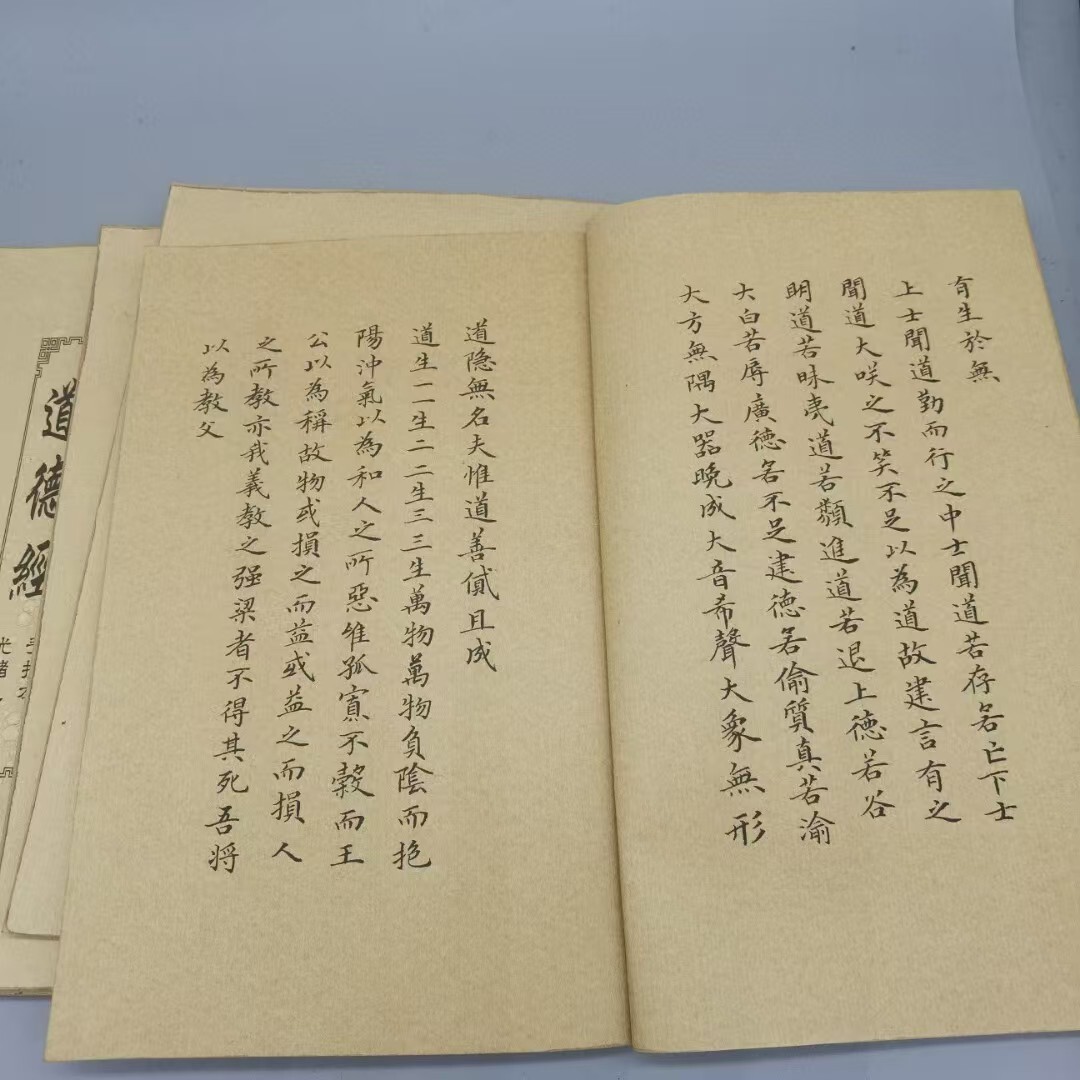 有生於無
上士聞道勤而行之中士聞道若存若亡下士
聞道大咲之不笑不足以為道故建言有之
明道若昧夷道若纇進道若退上德若谷
大白若辱廣德若不足建德若偷質真若渝
大方無隅大器晚成大音希聲大象無形
道隐無名夫惟道善貸且成
道生一一生二二生三三生萬物萬物負陰而抱
陽沖氣以為和人之所惡惟孤寡不穀而王
公以為稱故物或損之而益或益之而損人
之所教亦我義教之强梁者不得其死吾將
以為教父
道德經
光緒